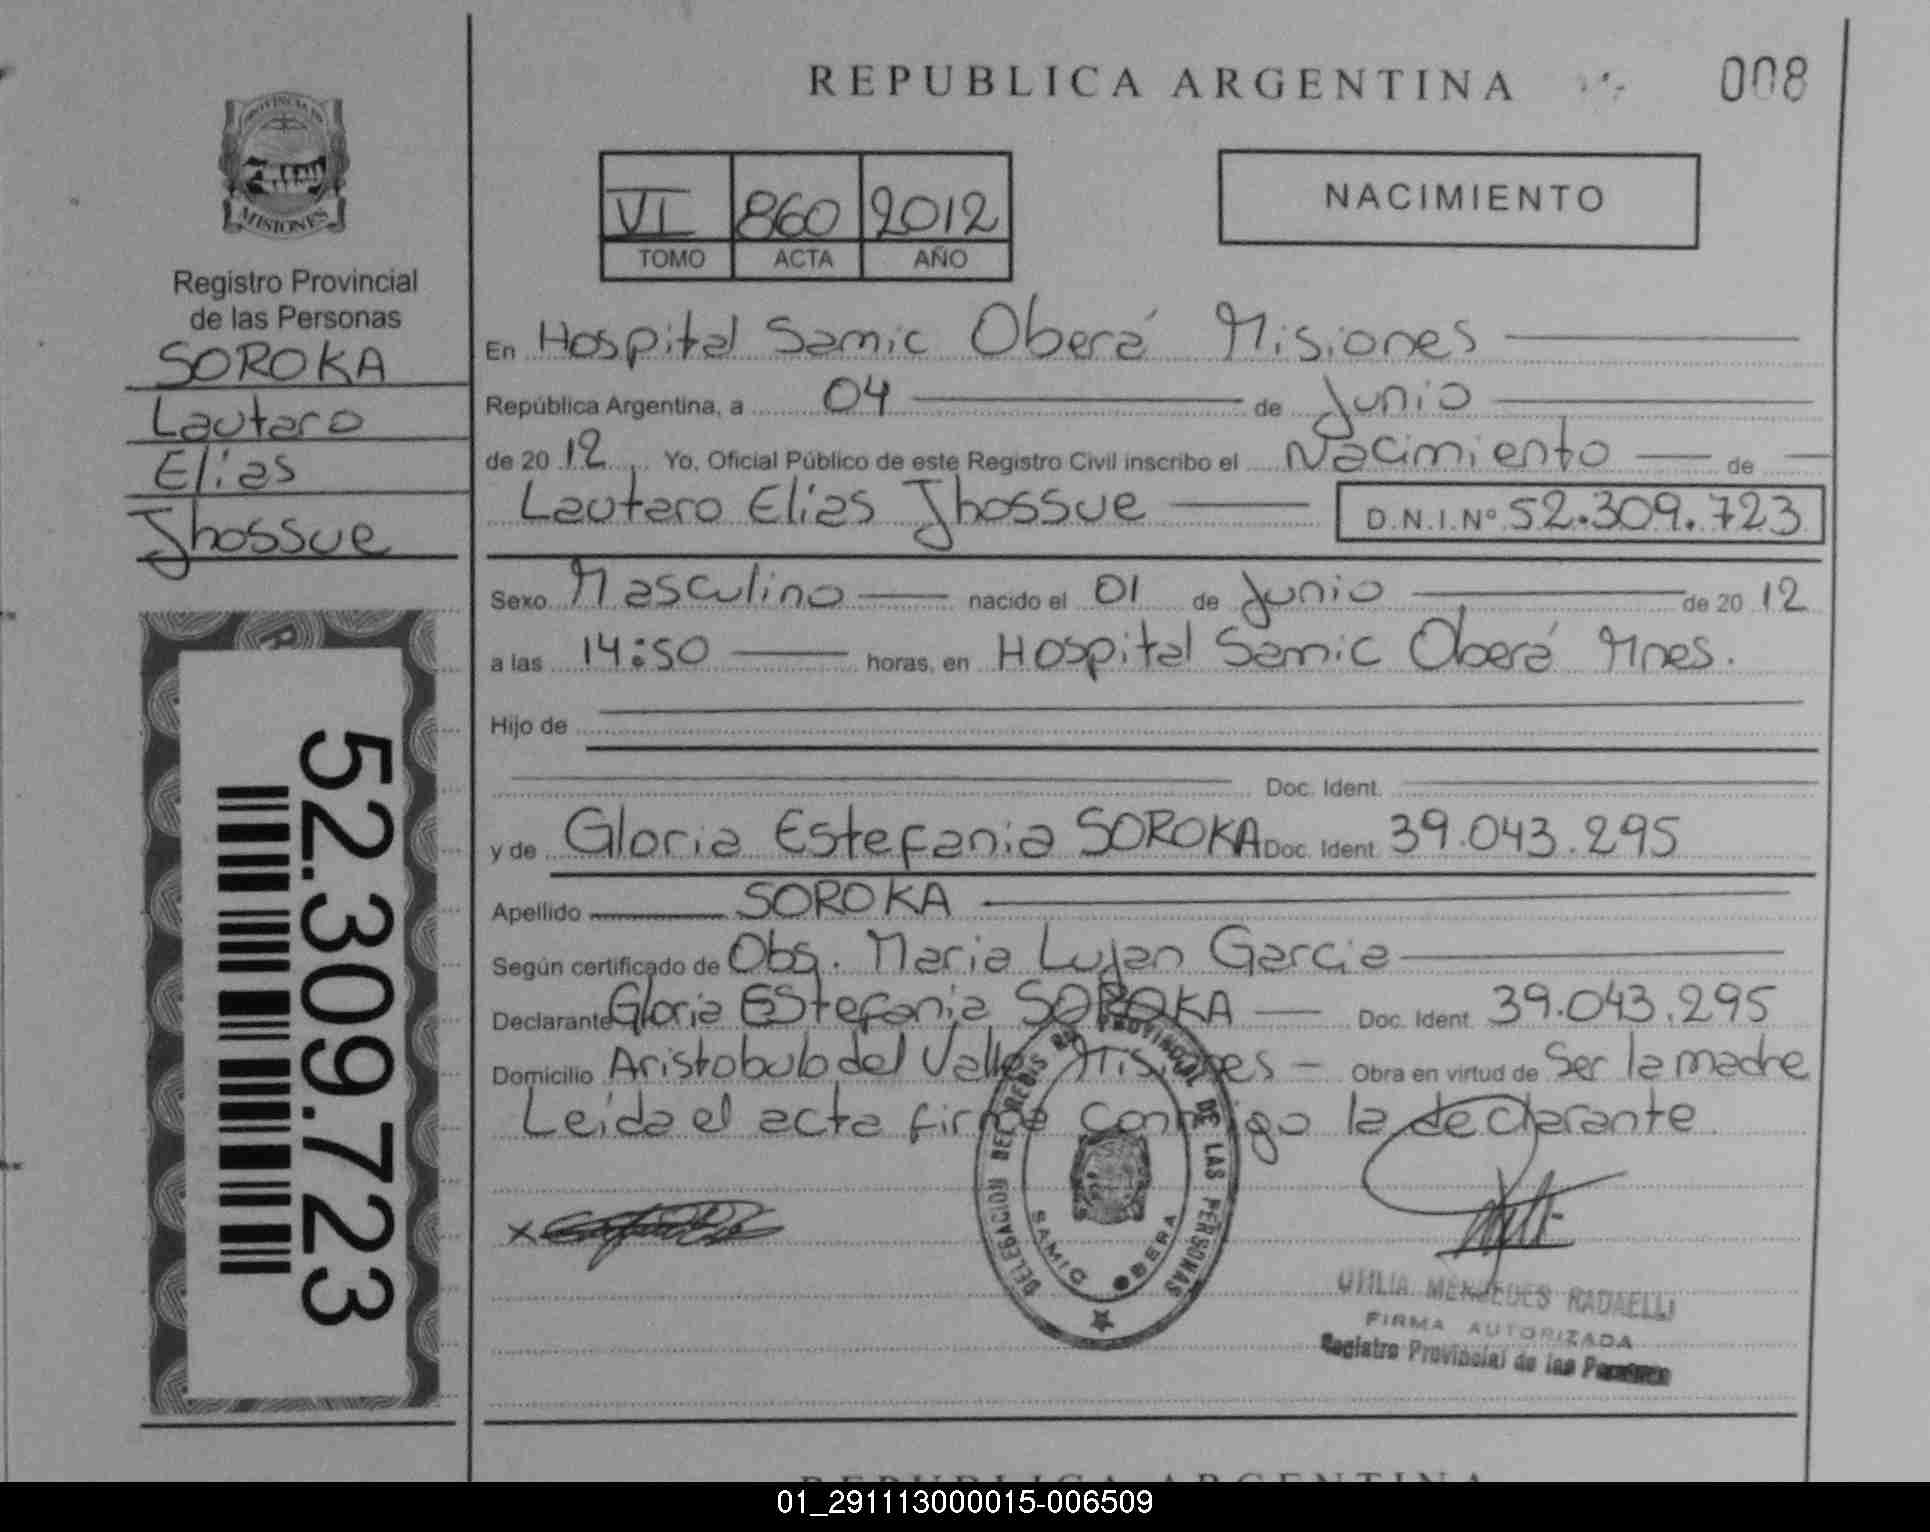 REPUBLICA ARGENTINA
008
PROVINCIA DE
MISIONES
Registro Provincial
de las Personas
SOROKA
Lautaro
Elias
Jhossue
52.309.723
VI 860 2012
TOMO ACTA AÑO
NACIMIENTO
En Hospital Samic Oberá Misiones
República Argentina, a 04 de Junio
de 20 12 Yo, Oficial Público de este Registro Civil inscribo el Nacimiento de
Lautaro Elias Jhossue D.N.I.Nº 52.309.723
Sexo Masculino nacido el 01 de Junio de 20 12
a las 14:50 horas, en Hospital Samic Oberá Mnes.
Hijo de
Doc. Ident.
y de Gloria Estefania SOROKA Doc. Ident. 39.043.295
Apellido SOROKA
Según certificado de Obs. Maria Lujan Garcia
Declarante Gloria EStefania SOROKA Doc. Ident. 39.043.295
Domicilio Aristobulo del Valle Misiones - Obra en virtud de Ser la madre
Leida el acta firma conmigo la declarante
DELEGACION DEL REGIS RO PROVINCIAL DE LAS PERSONAS
SAMIC OBERA
MERCEDES RADAELLI
FIRMA AUTORIZADA
Registro Provincial de las Personas
REPUBLICA ARGENTINA
01_291113000015-006509